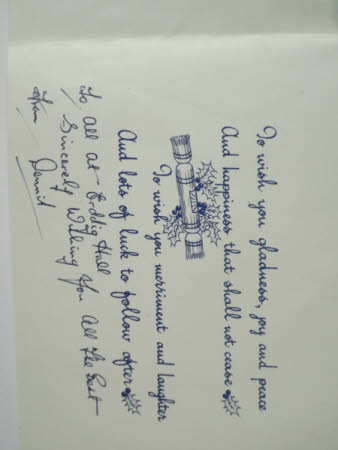 To wish you gladness, joy and peace
And happiness that shall not cease
To wish you merriment and laughter
And lots of luck to follow after
To all at Erddig Hall
Sincerely Wishing You All The Best
From Dennis